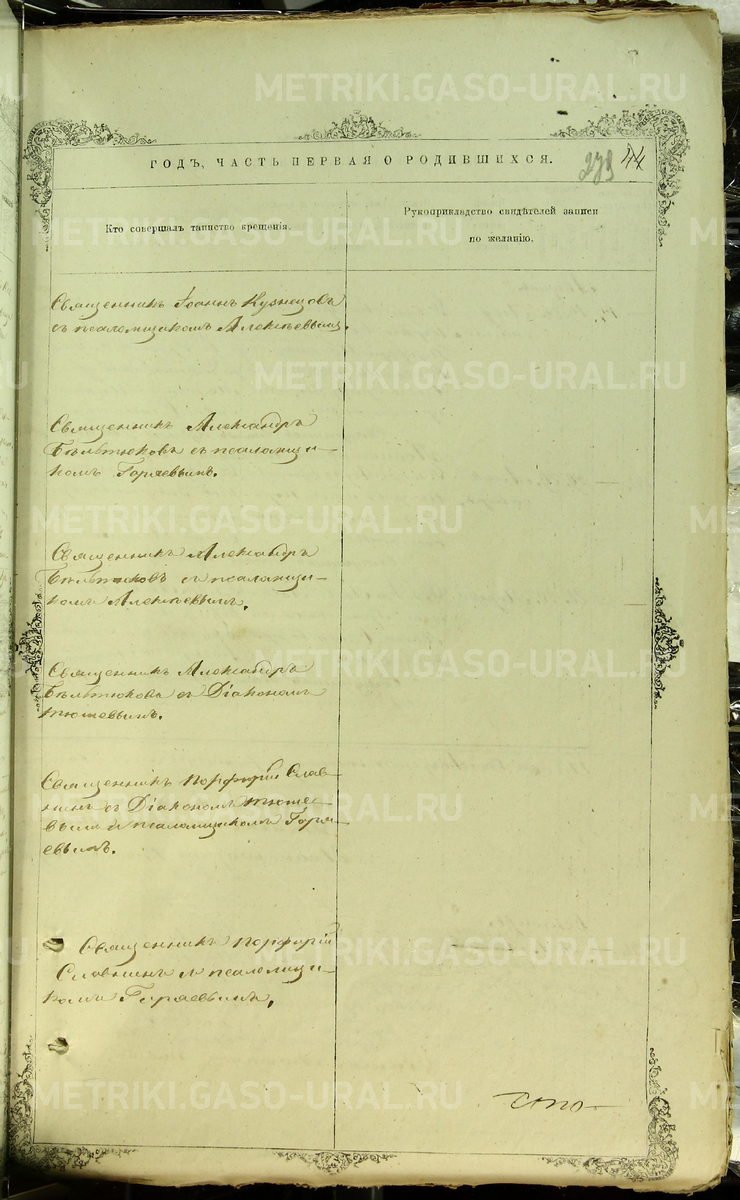 ГОДЪ, ЧАСТЬ ПЕРВАЯ О РОДИВШИХСЯ.
273 44
Кто совершалъ таинство крещенія.
Рукоприкладство свидѣтелей записи
по желанію.
Священникъ Іоаннъ Кузнецовъ
съ псаломщикомъ Алексѣевымъ.
Священникъ Александръ
Бѣльтюковъ съ псаломщи-
комъ Горяевымъ.
Священникъ Александръ
Бѣльтюковъ и псаломщи-
комъ Алексѣевымъ.
Священникъ Александръ
Бѣльтюковъ съ Діакономъ
Тюшевымъ.
Священникъ Порфирій Слав-
нинъ съ Діакономъ Тюше-
вымъ и псаломщикомъ Горя-
евымъ.
Священникъ Порфирій
Славнинъ и псаломщи-
комъ Горяевымъ.
METRIKI.GASO-URAL.RU